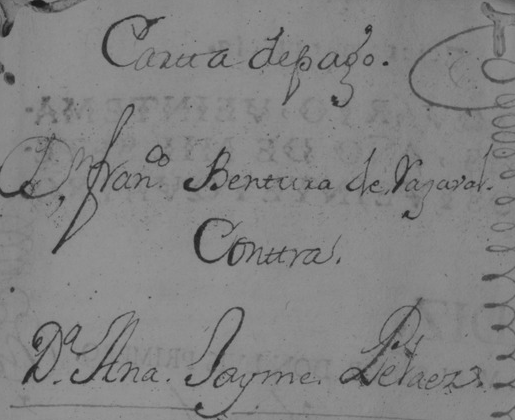 Carta depago.
Dn. franco. Bentura de
Contra.
Da. Ana. Jayme. Pelaez.